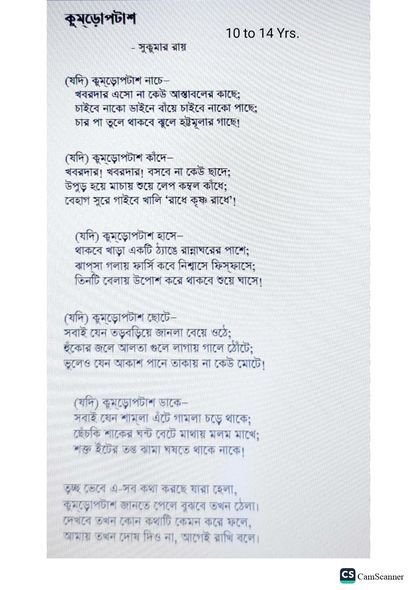 কুম্‌ড়োপটাশ
10 to 14 Yrs.
- সুকুমার রায়
(যদি) কুম্‌ড়োপটাশ নাচে–
খবরদার এসো না কেউ আস্তাবলের কাছে;
চাইবে নাকো ডাইনে বাঁয়ে চাইবে নাকো পাছে;
চার পা তুলে থাকবে ঝুলে হট্টমূলার গাছে!
(যদি) কুম্‌ড়োপটাশ কাঁদে–
খবরদার! খবরদার! বসবে না কেউ ছাদে;
উপুড় হয়ে মাচায় শুয়ে লেপ কম্বল কাঁধে;
বেহাগ সুরে গাইবে খালি 'রাধে কৃষ্ণ রাধে'!
(যদি) কুম্‌ড়োপটাশ হাসে–
থাকবে খাড়া একটি ঠ্যাঙে রান্নাঘরের পাশে;
ঝাপ্‌সা গলায় ফার্সি কবে নিশ্বাসে ফিস্‌ফাসে;
তিনটি বেলায় উপোশ করে থাকবে শুয়ে ঘাসে!
(যদি) কুম্‌ড়োপটাশ ছোটে–
সবাই যেন তড়বড়িয়ে জানলা বেয়ে ওঠে;
হুঁকোর জলে আলতা গুলে লাগায় গালে ঠোঁটে;
ভুলেও যেন আকাশ পানে তাকায় না কেউ মোটে!
(যদি) কুম্‌ড়োপটাশ ডাকে–
সবাই যেন শাম্‌লা এঁটে গামলা চড়ে থাকে;
ছেঁচকি শাকের ঘন্ট বেটে মাথায় মলম মাখে;
শক্ত ইঁটের তপ্ত ঝামা ঘষতে থাকে নাকে!
তুচ্ছ ভেবে এ-সব কথা করছে যারা হেলা,
কুম্‌ড়োপটাশ জানতে পেলে বুঝবে তখন ঠেলা।
দেখবে তখন কোন কথাটি কেমন করে ফলে,
আমায় তখন দোষ দিও না, আগেই রাখি বলে।
CS CamScanner